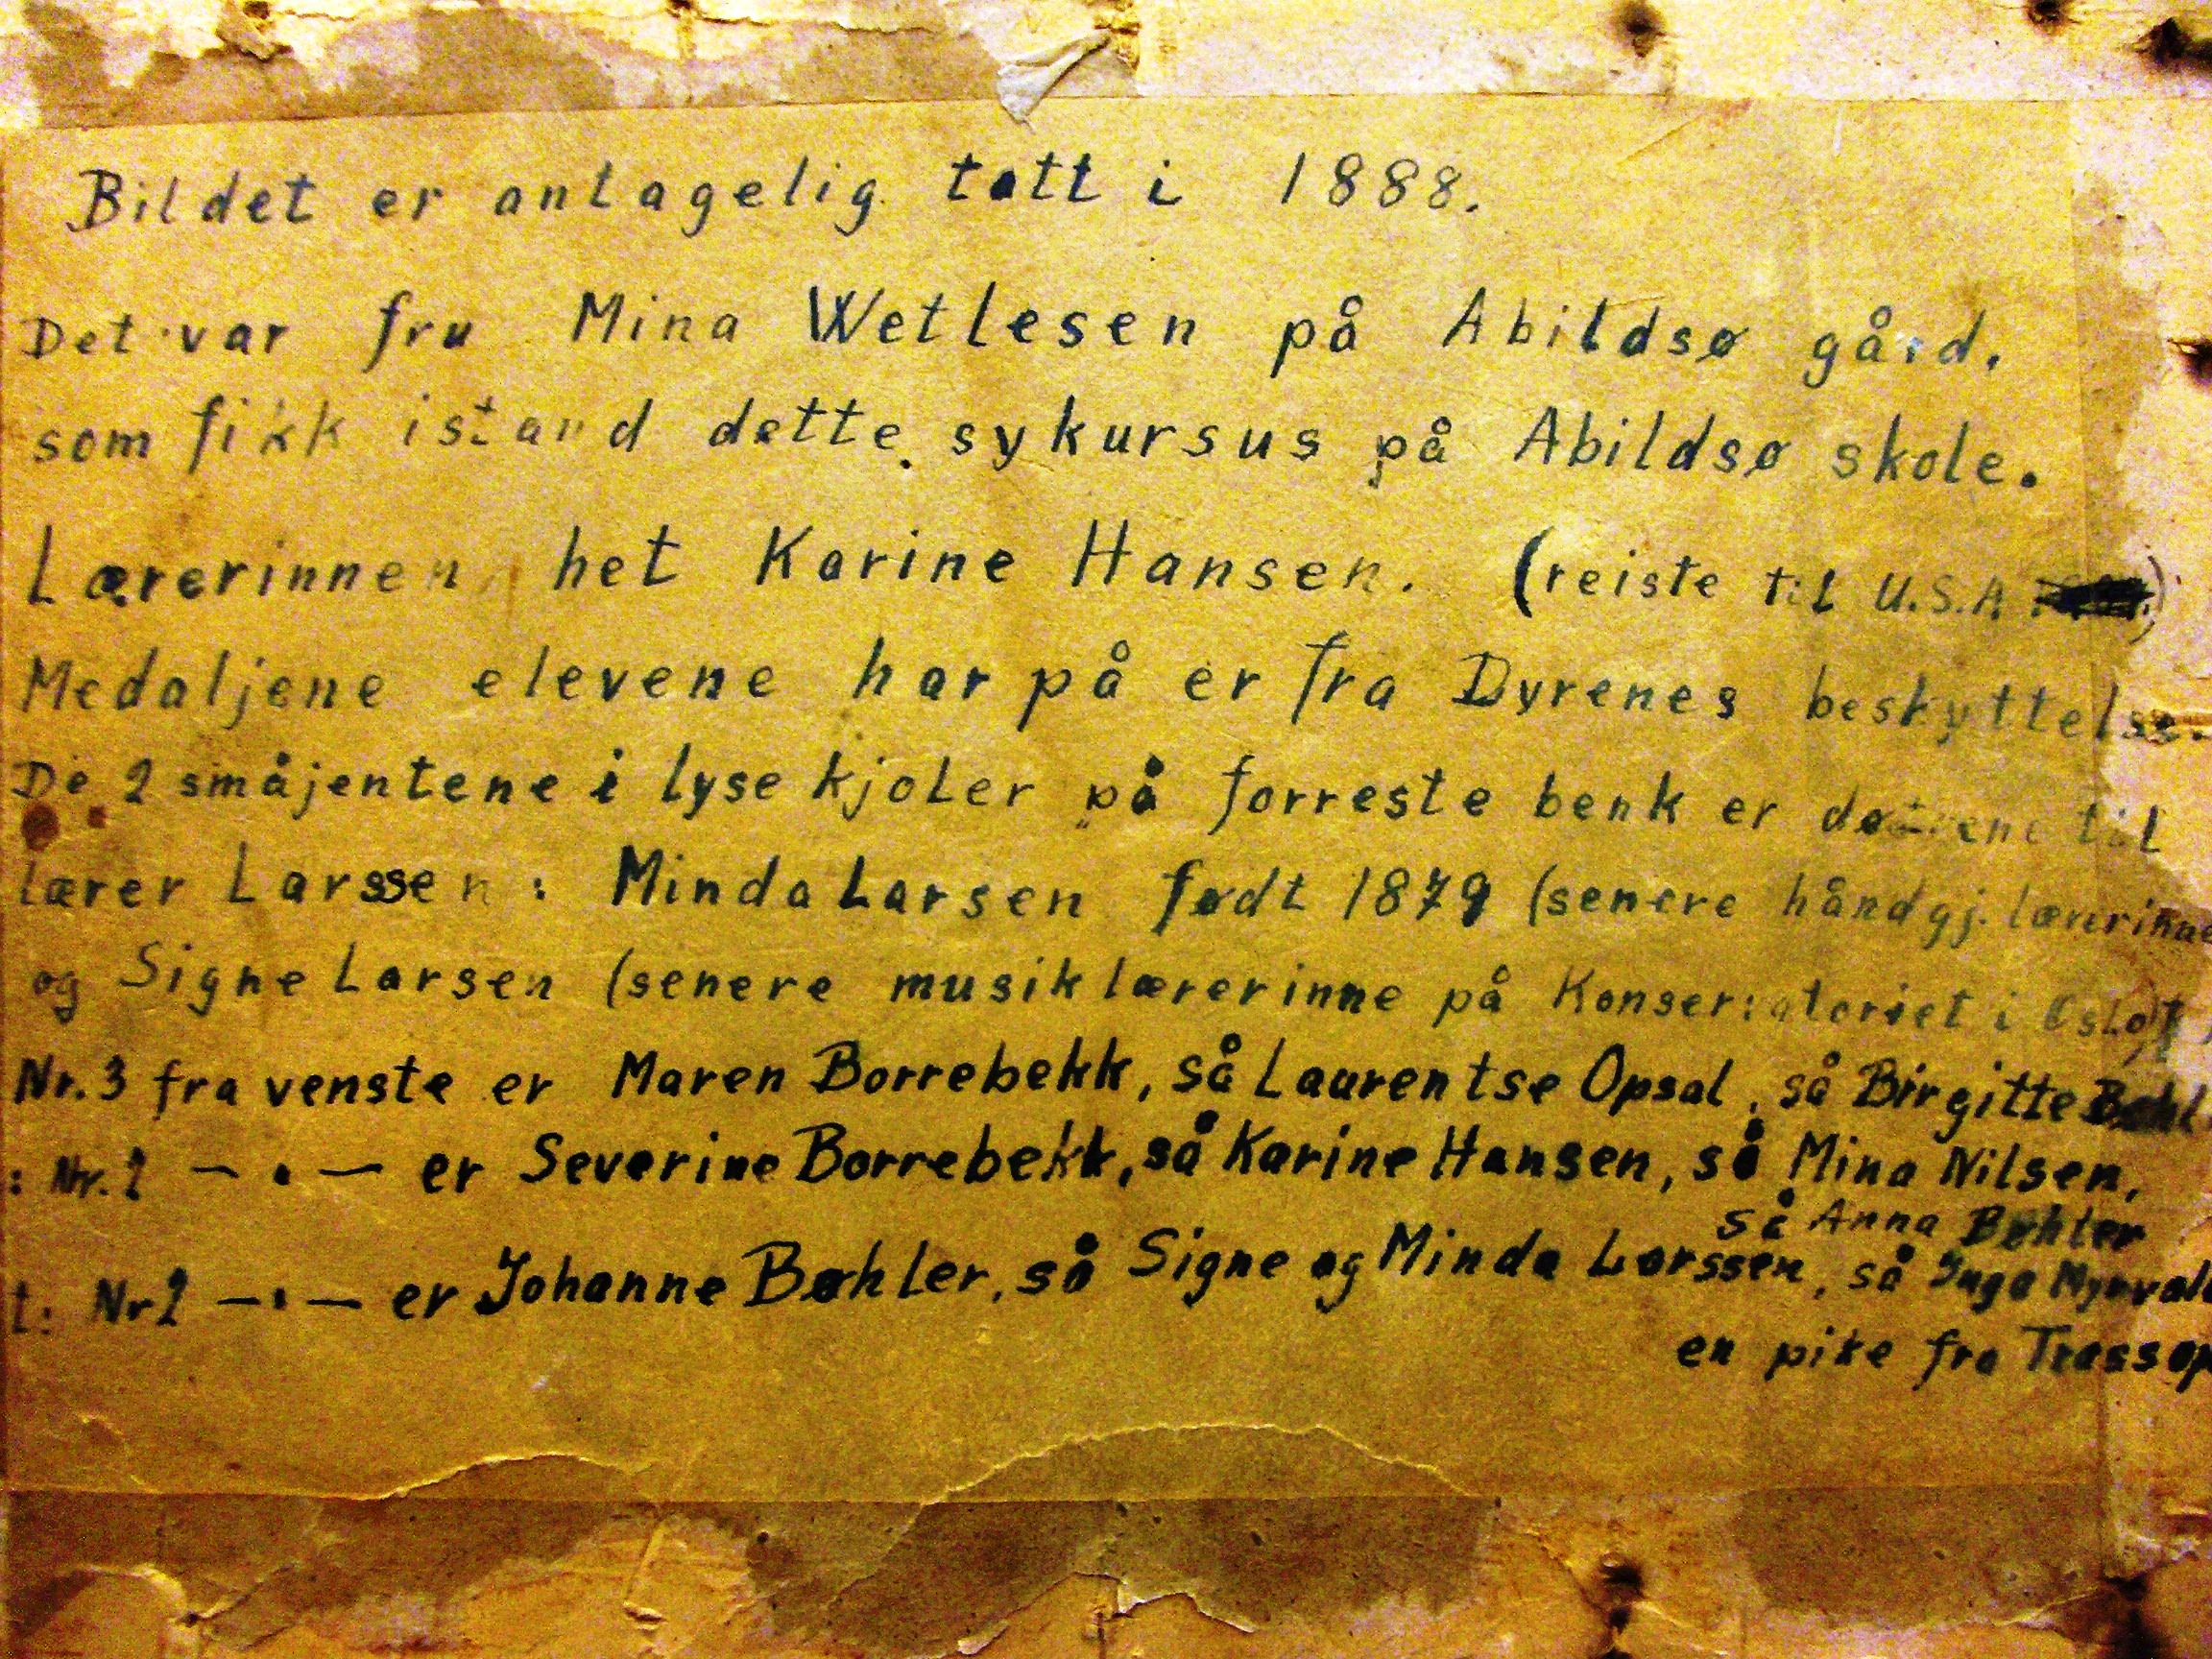 Bildet er antagelig tatt i 1888.
Det var fru Mina Wetlesen på Abildsø gård,
som fikk istand dette sykursus på Abildsø skole.
Lærerinnen het Karine Hansen. (reiste til U.S.A.)
Medaljene elevene har på er fra Dyrenes beskyttelse.
De 2 småjentene i lyse kjoler på forreste benk er døtrene til
lærer Larssen: Minda Larsen født 1879 (senere håndgj. lærerinne
og Signe Larsen (senere musiklærerinne på Konservatoriet i Oslo)
Nr. 3 fra venste er Maren Borrebekk, så Laurentse Opsal, så Birgitte Bøhl
: Nr. 2 — . — er Severine Borrebekk, så Karine Hansen, så Mina Nilsen,
så Anna Bøhler
t: Nr 2 — . — er Johanne Bøhler, så Signe og Minda Larssen, så Inga
en pike fra Trassop